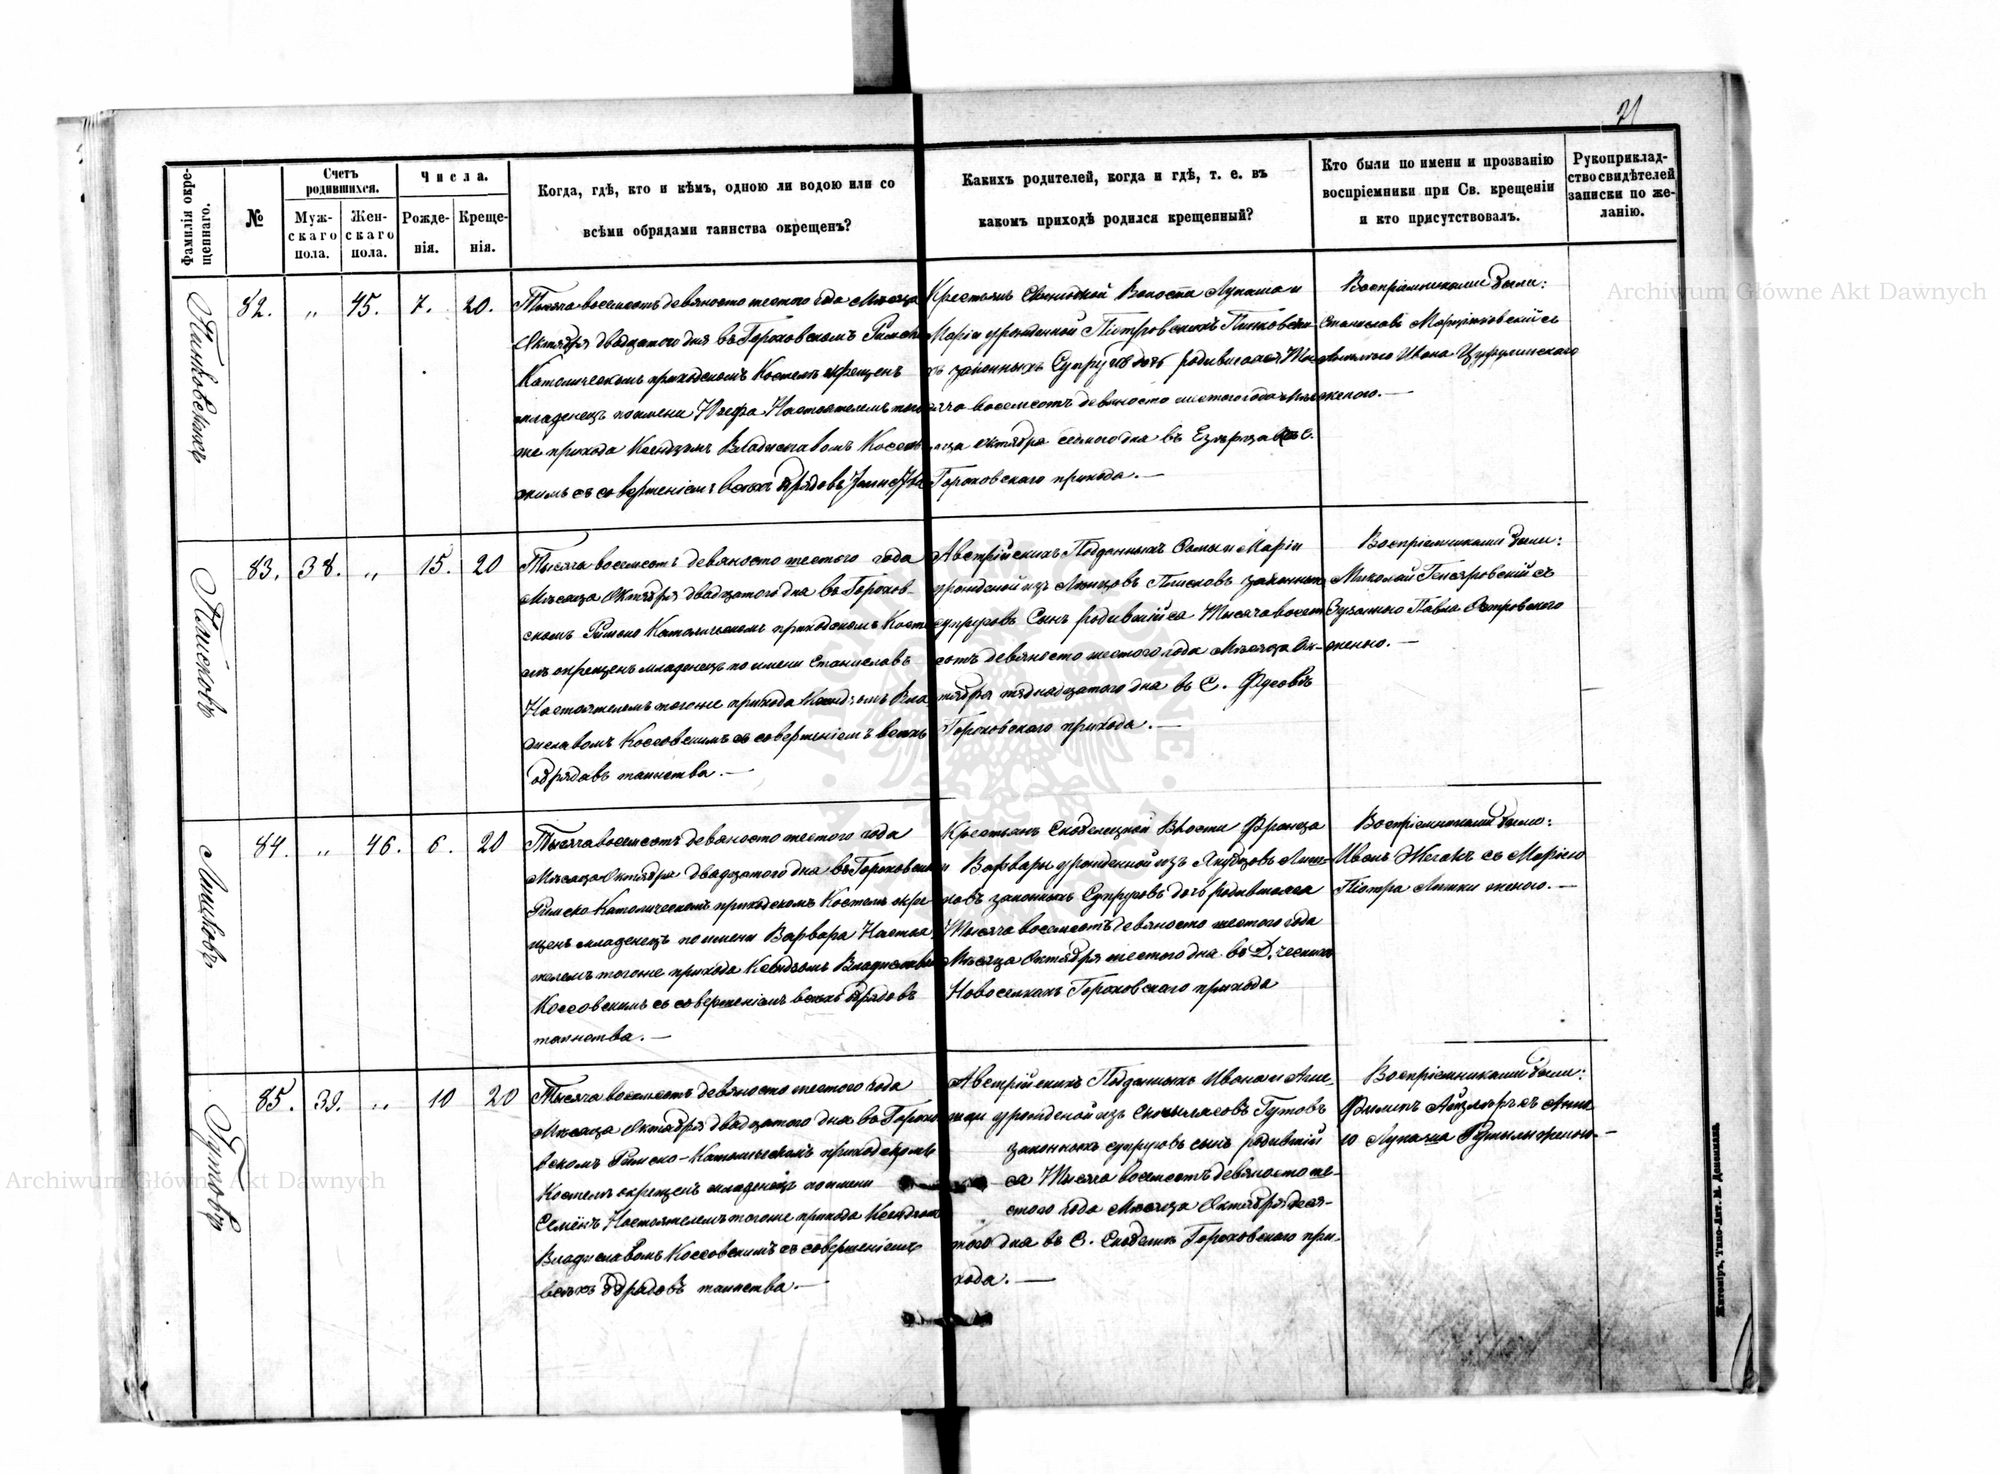 21
Фамилія окрещеннаго.
№
Счетъ родившихся.
Мужскаго пола.
Женскаго пола.
Числа.
Рожденія.
Крещенія.
Когда, гдѣ, кто и кѣмъ, одною ли водою или со
всѣми обрядами таинства окрещенъ?
Какихъ родителей, когда и гдѣ, т. е. въ
какомъ приходѣ родился крещенный?
Кто были по имени и прозванію
воспріемники при Св. крещеніи
и кто присутствовалъ.
Рукоприклад-
ство свидѣтелей
записки по же-
ланію.
82. " 45. 7. 20.
Тысяча восемсотъ девяносто шестого года Мѣсяца
Октября двадцатого дня въ Гороховскомъ Римско
Католическомъ приходскомъ Костелѣ окрещенъ
младенецъ по имени Настоятелемъ того
же прихода Ксендзомъ Владиславомъ Коссов
скимъ съ совершеніемъ всѣхъ обрядовъ
Крестьянъ Волости Лукаша и
Маріи урожденной
законныхъ Супруговъ дочь родившаяся Тыс
яча восемсотъ девяносто шестого года Мѣс
яца октября седмого дня въ
Гороховскаго прихода. —
Воспріемниками были:
Станиславъ съ
Ивана
женою. —
83. 38. " 15. 20
Тысяча восемсотъ девяносто шестого года
Мѣсяца Октября двадцатого дня въ Горохов-
скомъ Римско Католическомъ приходскомъ Косте
лѣ окрещенъ младенецъ по имени Станиславъ
Настоятелемъ тогоже прихода Ксендзомъ Вла
диславомъ Коссовскимъ съ совершеніемъ всѣхъ
обрядовъ таинства. —
Австрійскихъ Подданныхъ Фомы и Маріи
урожденой изъ законныхъ
супруговъ Сынъ родившійся Тысяча восем
сотъ девяносто шестого года Мѣсяца Ок-
тября пятнадцатого дня въ С.
Гороховскаго прихода. —
Воспріемниками были:
Николай съ
Павла Островского
женою. —
84. " 46. 6. 20
Тысяча восемсотъ девяносто шестого года
Мѣсяца Октября двадцатого дня въ Гороховском
Римско Католическомъ приходскомъ Костелѣ окре
щенъ младенецъ по имени Варвара Настоя
телемъ тогоже прихода Ксендзомъ Владиславом
Коссовскимъ съ совершеніемъ всѣхъ обрядовъ
таинства. —
Крестьянъ Скобелецкой Франца
и Варвары урожденной изъ
законныхъ Супруговъ дочь родившаяся
Тысяча восемсотъ девяносто шестого года
Мѣсяца Октября шестого дня въ Д.
Новоселкахъ Гороховскаго прихода
Воспріемниками были:
Иванъ съ Маріею
Піотра женою. —
Гутовъ
85. 39. " 10 20
Тысяча восемсотъ девяносто шестого года
Мѣсяца Октября двадцатого дня въ Горохо
вскомъ Римско-Католическомъ приходскомъ
Костелѣ окрещенъ младенецъ по имени
Семёнъ Настоятелемъ тогоже прихода Ксендзом
Владиславомъ Коссовскимъ съ совершеніемъ
всѣхъ обрядовъ таинства. —
Австрійскихъ Подданныхъ Ивана и
урожденой изъ Гутовъ
законныхъ супруговъ сынъ родившій
ся Тысяча восемсотъ девяносто ше-
стого года Мѣсяца Октября деся-
того дня въ С. Гороховскаго при-
хода. —
Воспріемниками были:
Филипъ съ
Лукаша женою. —
Житоміръ, Типо-Лит. М. Дененмана.
Archiwum Główne Akt Dawnych
Archiwum Główne Akt Dawnych